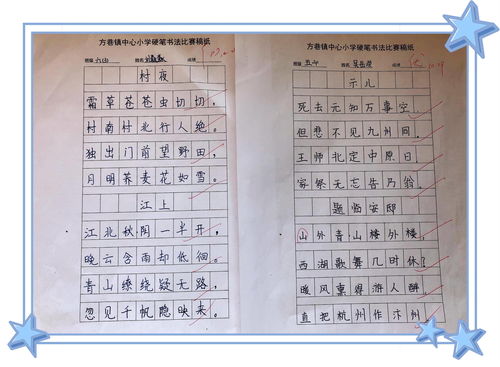 方巷镇中心小学硬笔书法比赛稿纸
班级 六(2) 姓名 成绩
村夜
霜草苍苍虫切切，
村南村北行人绝。
独出门前望野田，
月明荞麦花如雪。
江上
江北秋阴一半开，
晚云含雨却低徊。
青山缭绕疑无路，
忽见千帆隐映来。
方巷镇中心小学硬笔书法比赛稿纸
班级 姓名 成绩
示儿
死去元知万事空，
但悲不见九州同。
王师北定中原日，
家祭无忘告乃翁。
题临安邸
山外青山楼外楼，
西湖歌舞几时休？
暖风熏得游人醉，
直把杭州作汴州。